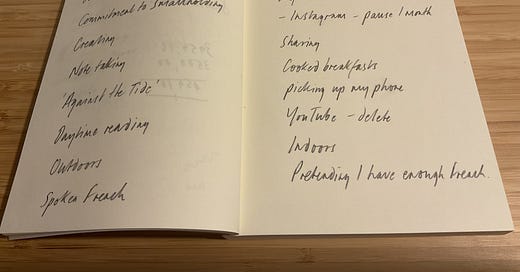 Commitment to Smallholding
Creating
Note taking
'Against the Tide'
Daytime reading
Outdoors
Spoken French
- Instagram - pause 1 month
Sharing
Cooked breakfasts
picking up my phone
YouTube - delete
Indoors
Pretending I have enough French.